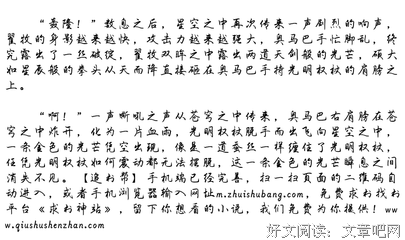 “轰隆！”数息之后，星空之中再次传来一声剧烈的响声，
翟牧的身影越来越快，攻击力越来越强大，奥马巴手忙脚乱，终
究露出了一丝破绽，翟牧双眸之中露出两道天剑般的光芒，硕大
如星辰般的拳头从天而降直接砸在奥马巴手持光明权杖的肩膀之
上。
“啊！”一声嘶吼之声从苍穹之中传来，奥马巴右肩膀在苍
穹之中炸开，化为一片血雨，光明权杖脱手而出飞向星空之中，
一条金色的光芒凭空出现，像是一道蚕丝一样缠住了光明权杖，
任凭光明权杖如何震动都无法摆脱，这一条金色的光芒瞬息之间
消失不见。【追书帮】手机端已经完善，扫一扫页面的二维码自
动进入，或者手机浏览器输入网址m.zhuishubang.com，免费求书找书
平台《求书神站》，留下你想看的小说，我们免费为你提供！ww
w.qiushushenzhan.com
好文阅读：文章吧网